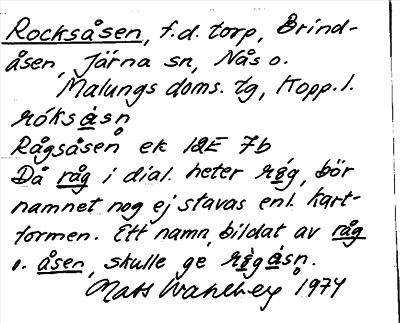 Rocksåsen, f.d. torp, Brind-
åsen, Järna sn, Nås o.
Malungs doms. tg, Kopp. l.
róksåsn
Rågsåsen ek 12E 7b
Då råg i dial. heter rǿg, bör
namnet nog ej stavas enl. kart-
formen. Ett namn, bildat av råg
o. åsen, skulle ge
Mats Wahlberg 1974